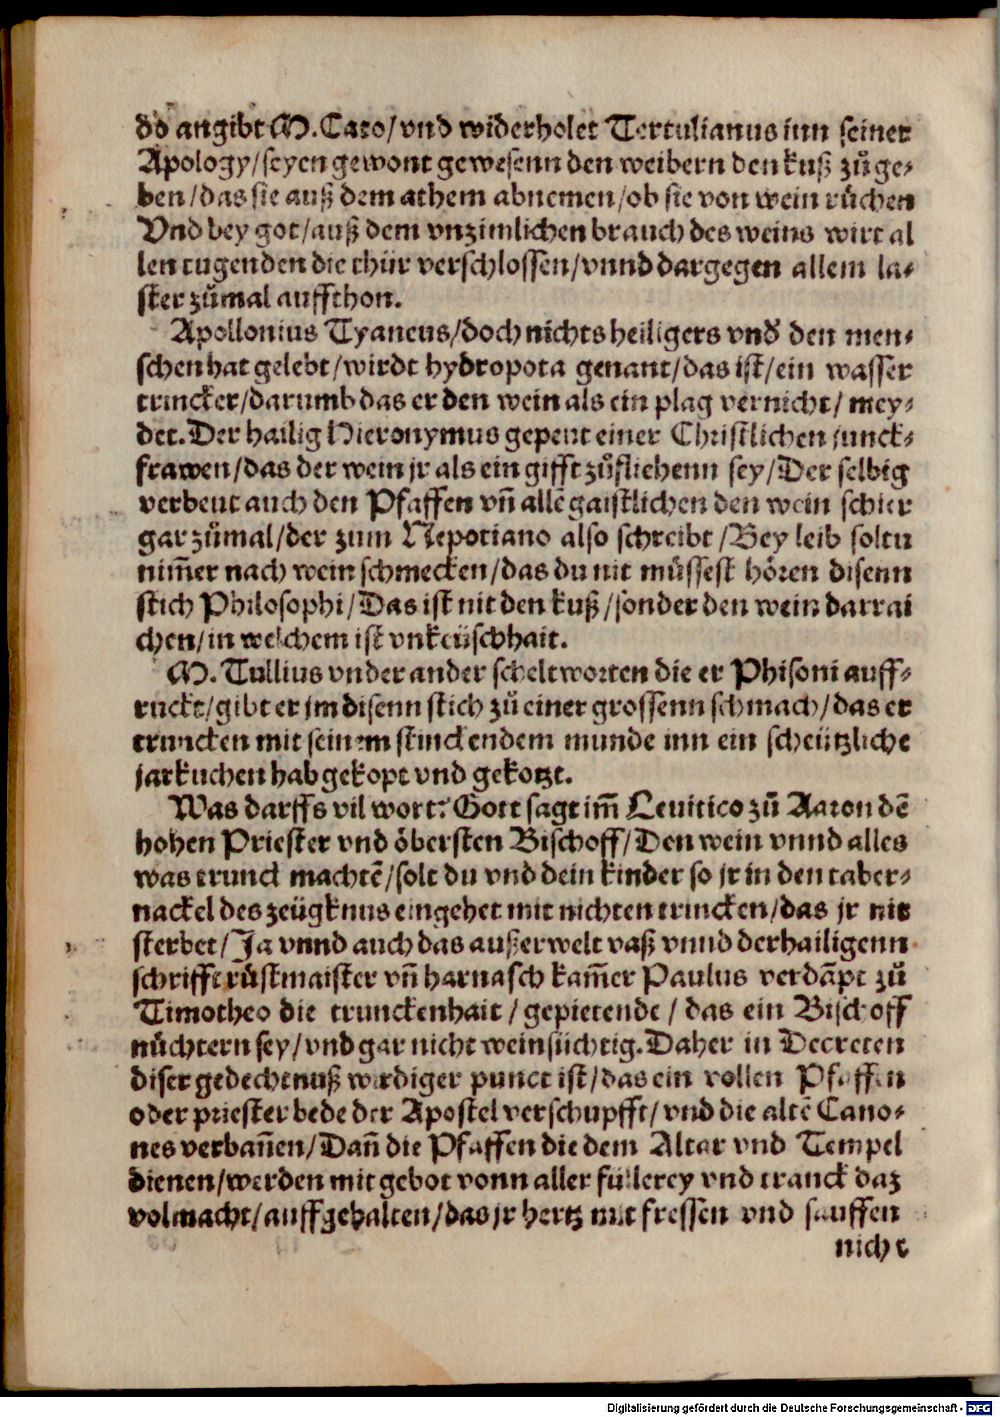 dō angibt M.Cato/vnd widerholet Tertulianus inn seiner
Apology/seyen gewont gewesenn den weibern den kuß zůge-
ben/das sie auß dem athem abnemen/ob sie von wein růchen
Vnd bey got/auß dem vnzimlichen brauch des weins wirt al
len tugenden die thür verschlossen/vnnd dargegen allem la-
ster zůmal auffthon.
Apollonius Tyaneus/doch nichts heiligers vnd̓ den men-
schen hat gelebt/wirdt hydropota genant/das ist/ein wasser
trincker/darumb das er den wein als ein plag vernicht/mey-
det. Der hailig Hieronymus gepeut einer Christlichen junck-
frawen/das der wein jr als ein gifft zůfliehenn sey/Der selbig
verbeut auch den Pfaffen vn̄ allē gaistlichen den wein schier
gar zůmal/der zum Nepotiano also schreibt/Bey leib soltu
nim̄er nach wein schmecken/das du nit müssest hören disenn
stich Philosophi/Das ist nit den kuß/sonder den wein darrai
chen/in welchem ist vnkeüschhait.
M.Tullius vnder ander scheltworten die er Phisoni auff-
ruckt/gibt er jm disenn stich zů einer grossenn schmach/das er
truncken mit seinem stinckendem munde inn ein scheützliche
jarkuchen hab gekopt vnd gekotzt.
Was darffs vil wort? Gott sagt im̄ Leuitico zů Aaron dē
hohen Priester vnd öbersten Bischoff/Den wein vnnd alles
was trunck machtē/solt du vnd dein kinder so jr in den taber-
nackel des zeügknus eingehet mit nichten trincken/das jr nit
sterbet/Ja vnnd auch das außerwelt vaß vnnd der hailigenn
schrifft rüstmaister vn̄ harnasch kam̄er Paulus verdāpt zů
Timotheo die trunckenhait/gepietende/das ein Bischoff
nůchtern sey/vnd gar nicht weinsüchtig. Daher in Decreten
diser gedechtnuß wirdiger punct ist/das ein vollen Pfaffen
oder priester bede der Apostel verschupfft/vnd die altē Cano-
nes verban̄en/Dan̄ die Pfaffen die dem Altar vnd Tempel
dienen/werden mit gebot vonn aller füllerey vnd tranck daz
volmacht/auffgehalten/das jr hertz mit fressen vnd sauffen
nicht
Digitalisierung gefördert durch die Deutsche Forschungsgemeinschaft - DFG